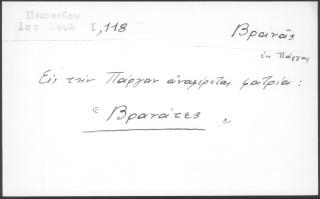 Περραιβου
Ιστ Σουλ Ι, 118
Βρανᾶς
ἐκ Πάργας
Εἰς τὴν Πάργαν ἀναφέρεται φατρία:
"Βρανάτες"